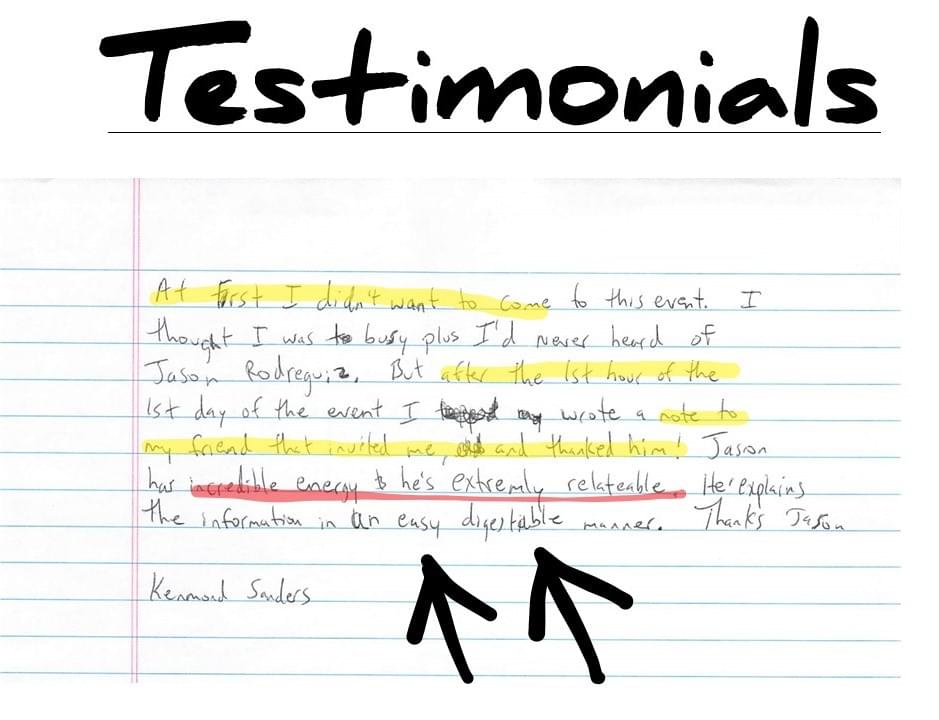 Testimonials
At first I didn't want to come to this event. I
thought I was to busy plus I'd never heard of
Jason Rodreguiz. But after the 1st hour of the
1st day of the event I wrote a note to
my friend that invited me, and thanked him! Jason
has incredible energy & he's extremly relateable. He' explains
the information in an easy digestable manner. Thanks Jason
Kenmond Sanders